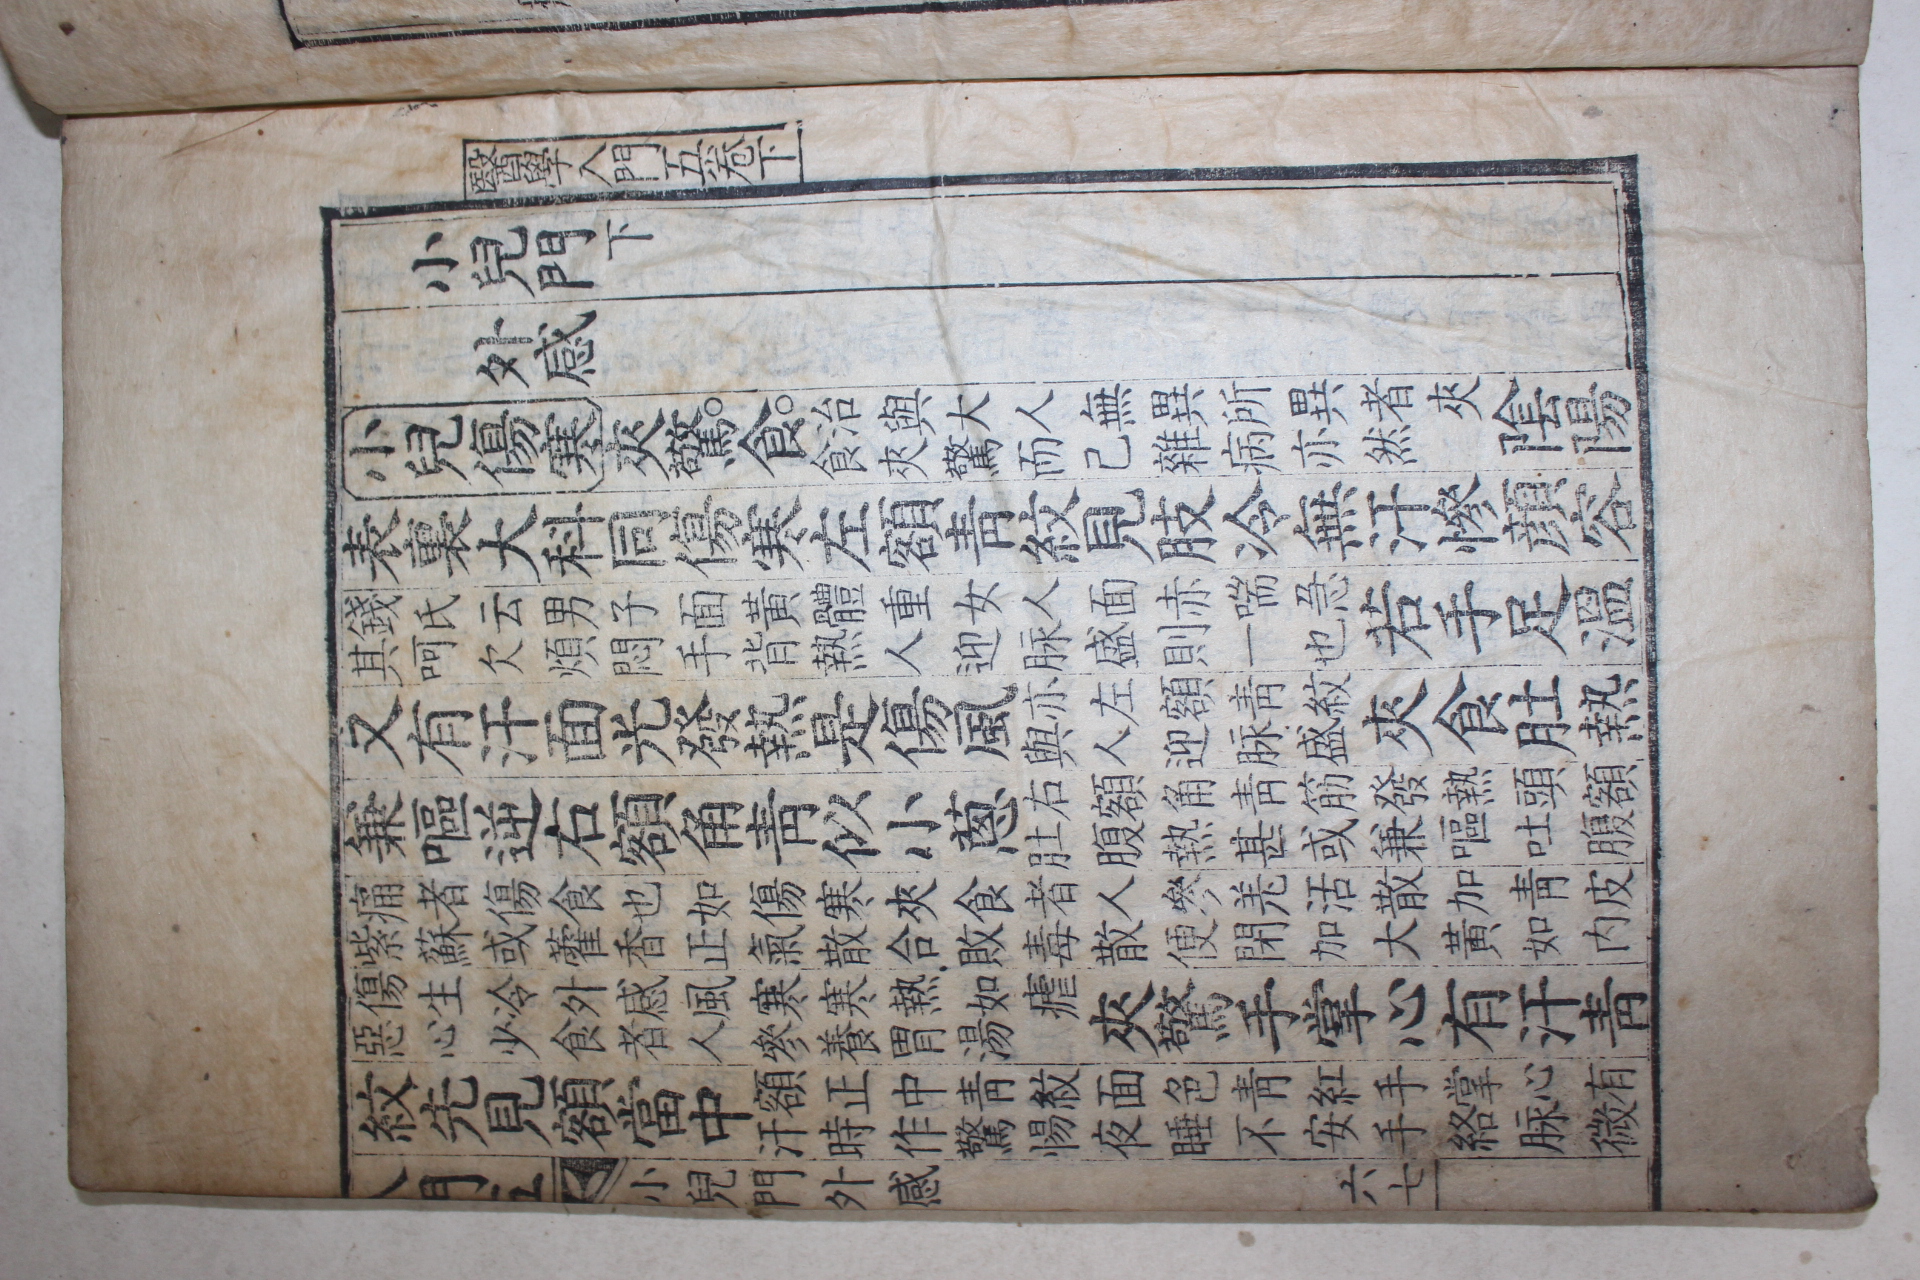 醫學入門五卷下
小兒門下
外感
小兒傷寒夾驚。食。治與大人無異所異者夾
食夾驚而已雜病亦然
陰陽
表裏大科同傷寒左額靑紋見肢冷無汗慘顔容
錢氏云男子面黃體重女人面赤喘急
其呵欠煩悶手背熱人迎脉盛則一也
若手足溫
又有汗面光發熱是傷風
亦左額靑紋
與人迎脉盛
夾食肚熱
兼嘔逆右額角靑似小蔥
右額角靑筋發熱頭額
肚腹熱甚或兼嘔吐腹
痛者傷食也如傷寒夾食者人參羌活散加靑皮
紫蘇或藿香正氣散合敗毒散便閉加大黃如內
傷生冷外感風寒寒熱如瘧
惡心少食者人參養胃湯
夾驚手掌心有汗靑
紋先見額當中
額正中靑紋面色靑紅手掌心有
汗時作驚惕夜睡不安手絡脉微
入門五 小兒門外感 六七